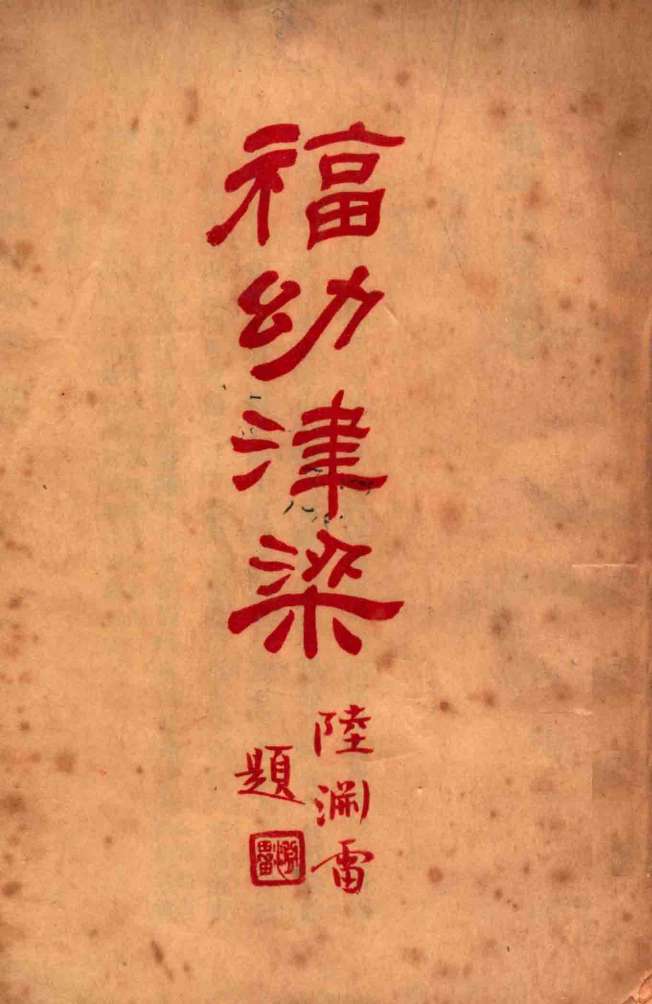 福幼津梁
陸淵雷
題